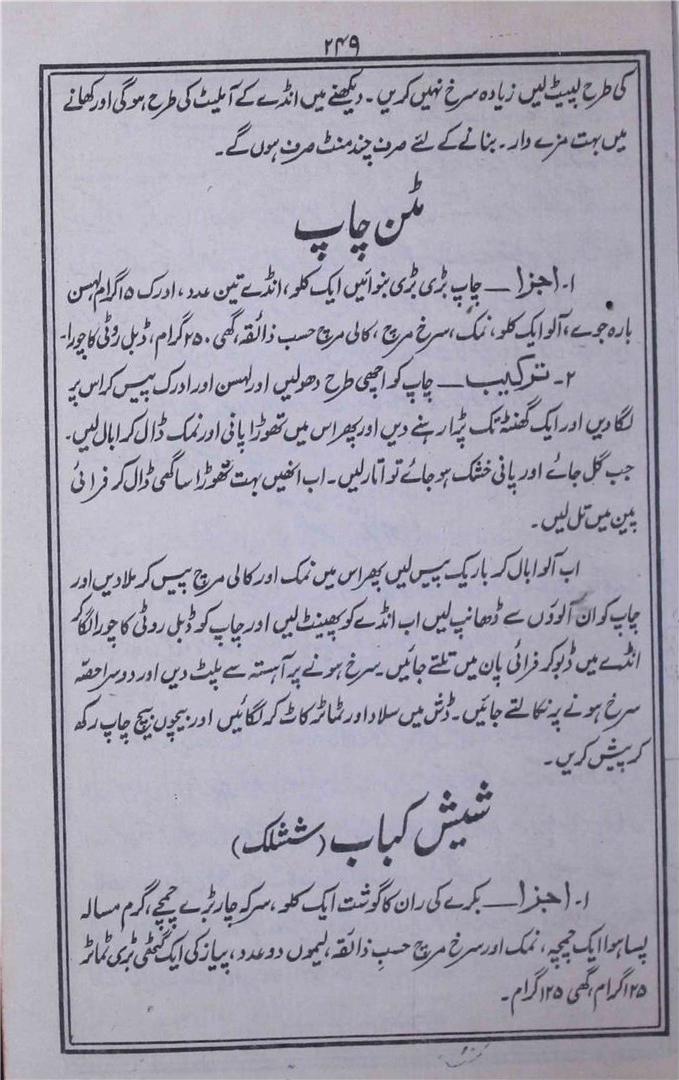 ۲۴۹
کی طرح لپیٹ لیں زیادہ سرخ نہیں کریں۔ دیکھنے میں انڈے کے آملیٹ کی طرح ہوگی اور کھانے
میں بہت مزے دار۔ بنانے کے لئے صرف چند منٹ صرف ہوں گے۔
مٹن چاپ
۱۔ اجزا — چاپ بڑی بڑی بنوائیں ایک کلو، انڈے تین عدد، ادرک ۱۵ گرام، لہسن
بارہ جوے، آلو ایک کلو، نمک، سرخ مرچ، کالی مرچ حسب ذائقہ، گھی ۲۵۰ گرام، ڈبل روٹی کا چورا۔
۲۔ ترکیب — چاپ کو اچھی طرح دھولیں اور لہسن اور ادرک پیس کر اس پر
لگا دیں اور ایک گھنٹہ تک پڑا رہنے دیں اور پھر اس میں تھوڑا پانی اور نمک ڈال کر ابال لیں۔
جب گل جائے اور پانی خشک ہو جائے تو اتار لیں۔ اب انھیں بہت تھوڑا سا گھی ڈال کر فرائی
پین میں تل لیں۔
اب آلو ابال کر باریک پیس لیں پھر اس میں نمک اور کالی مرچ پیس کر ملا دیں اور
چاپ کو ان آلوؤں سے ڈھانپ لیں اب انڈے کو پھینٹ لیں اور چاپ کو ڈبل روٹی کا چورا لگا کر
انڈے میں ڈبو کر فرائی پان میں تلتے جائیں۔ سرخ ہونے پر آہستہ سے پلٹ دیں اور دوسرا حصّہ
سرخ ہونے پر نکالتے جائیں۔ ڈش میں سلاد اور ٹماٹر کاٹ کر لگائیں اور بیچوں بیچ چاپ رکھ
کر پیش کریں۔
شیش کباب (ششلک)
۱۔ اجزا — بکرے کی ران کا گوشت ایک کلو، سرکہ چار بڑے چمچے، گرم مسالہ
پسا ہوا ایک چمچہ، نمک اور سرخ مرچ حسبِ ذائقہ، لیموں دو عدد، پیاز کی ایک گٹھی بڑی ٹماٹر
۱۲۵ گرام، گھی ۱۲۵ گرام۔